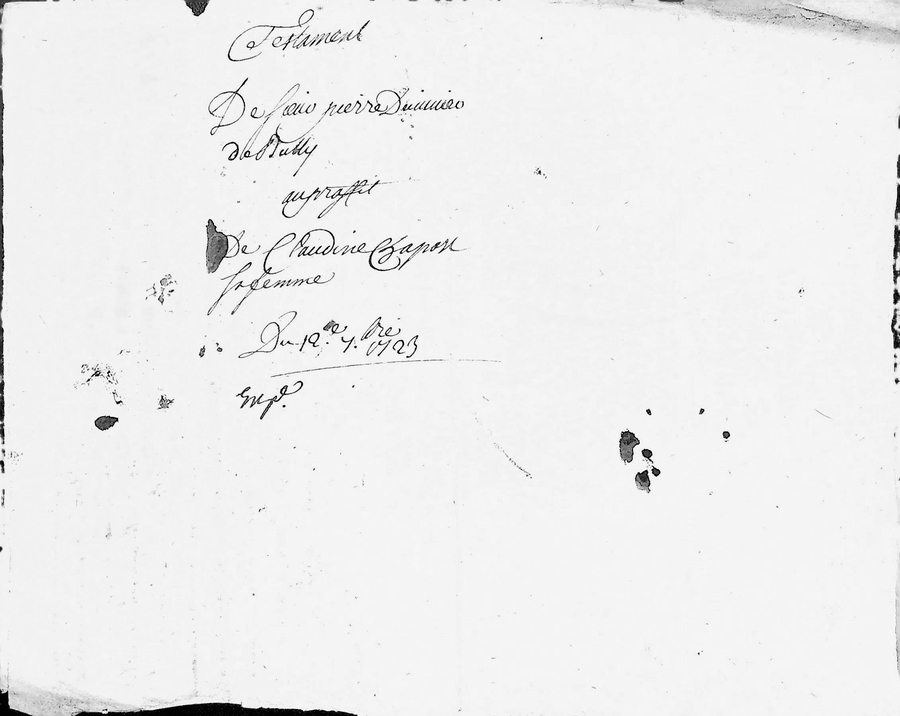 Testament
De pierre
de Bully
au proffit
De Claudine Chapon
sa femme
Du 12.e 7.bre 1723